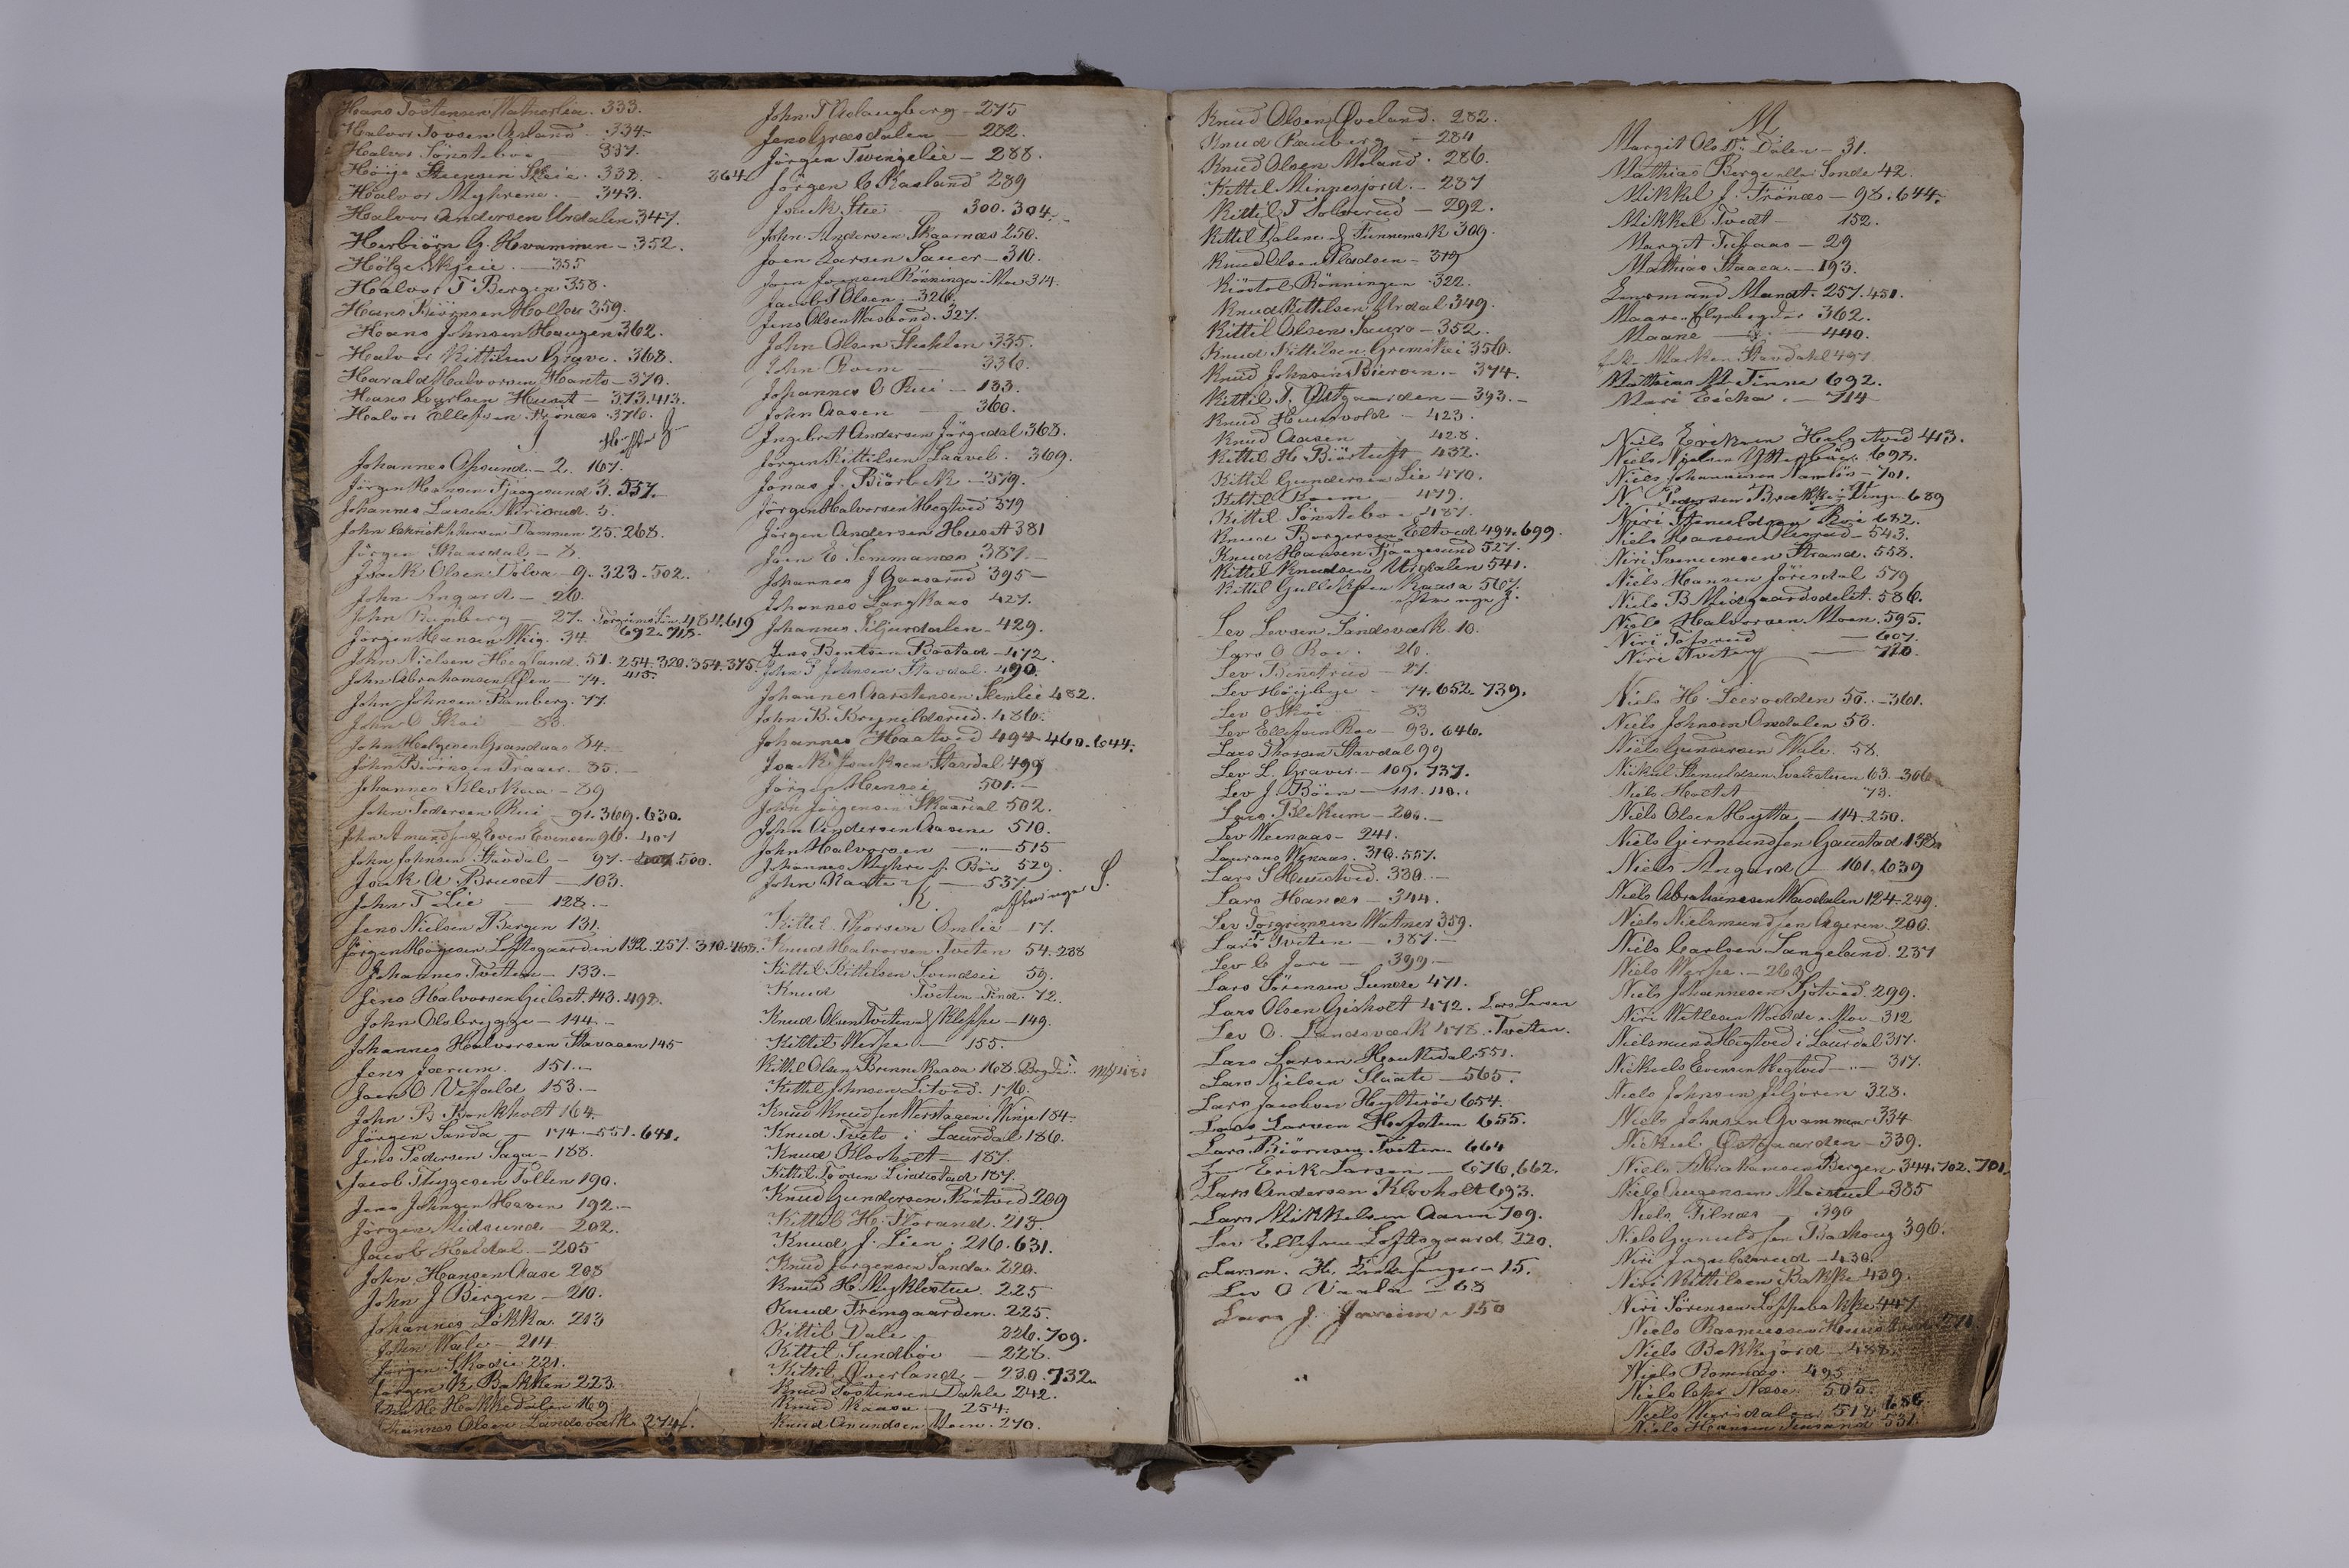 Hans Tostensen 333.
Halvor Tovsen Aasland - 334.
Halvor Sønstebøe 337.
Høije Steensen Skeie. 338. - 364.
Halvor Myhrene. - 343.
Halvor Andersen Urdalen 347.
Herbiörn G. Hvammen - 352.
Hølge Skjeie. - 355
Halvor T Bergen 358.
Hans Biörnsen Holtou 359.
Hans Johnsen Haugen 362.
Halvor Kittilsen Grave. 368.
Harald Halvorsen Kants - 370.
Hans Carlsen Huset - 373.413.
Halvor Ellefsen 376.
J
Johannes Opsund. - 2. 167.
Jörgen Hansen Fjaagesund 3. 557.
Johannes Larsen Nirisrud. 5.
John Christophersen Dammen 25. 268.
Jörgen Skaardal - 8.
Isack Olsen Dolva - 9. 323. 502.
John Angard - 26.
John Ramberg 27. 484.619
Jörgen Hansen Wiig. 34. 692. 718.
John Nielsen Hegland. 51. 254. 320. 354. 375.
John Abrahamsen Moen - 74. 415.
John Johnsen Ramberg. 77.
John O Skoi - 83.
John Helgesen Grandaas 84.
John Biörnsen Traaer. - 85. -
Johannes Klevkaia - 89
John Pedersen Rui - 91. 369. 630.
John Amundsen & Even Evensen 96. 407
John Johnsen Stavdal - 97. 500.
Isak A. Bruset - 103.
John T Lie - 128. -
Jens Nielsen Bergen 131.
Jörgen Høgesen Loftsgaarden 132. 257. 370. 468.
Johannes Tveten - 133. -
Jens Halvorsen Gjelset. 143. 498.
John Olsbrygge - 144. -
Johannes Halvorsen Stavaaen 145
Jens Jærum. 151. -
Jaen O Vefald 153. -
John B Bonkholt 164.
Jörgen Sanda - 174. 551. 641.
Jens Pedersen Saga - 188.
Jacob Thygesen Tollen 190.
Jens Johnsen Haven 192. -
Jörgen Midsund - 202.
Jacob Heldal. - 205
John Hansen Aase 208
John J Bergen - 210.
Johannes Løkka. 213
John Wale - 214
Jörgen Skadie 221.
Jörgen K Bakken 223.
John H Hakkedalen 169
Johannes Olsen Landsverk 274.
John T Aslaugberg - 275
Jens Græsdalen - 282.
Jörgen Tveingelie - 288.
Jörgen C Rasland 289
Isack Stie 300. 304.
John Andersen Skaarnes 250.
Joen Larsen Sauer - 310.
Joen Joensen Rönningen i Moe 314.
Jacob J Olsen. - 326.
Jens Olsen Wasbond. 327.
John Olsen Steklen 335.
John Roem - 336.
Johannes C Rui - 133.
John Aasen - 360.
Ingebret Andersen Jörgedal 368.
Jörgen Kittilsen Laaveb. 369.
Jonas J. Biörbæk - 379.
Jörgen Halvorsen Hegtved 379
Jörgen Andersen Huset 381
Joen E Semmanæs 387. -
Johannes J Gaaserud 395 -
Johannes Langkaas 427.
Johannes Siljurdalen - 429.
Jens Bentsen Bostad - 472.
John P Johnsen Stavdal. 490.
Johannes Carstensen Slemlie 482.
John B. Brynildsrud. 486.
Johannes Haatved 494 - 460. 644.
Isack Isacksen Stavdal 499
Jörgen Heinsei 501. -
John Jörgensen Skaardal 502.
John Andersen Aasene 510.
John Halvorsen - " - 515
Johannes Myhre f. Böe 529.
John Raate - 537
K.
Kittil Thorsen Omlie - 17.
Knud Halvorsen Tveten 54. 238
Kittil Kittilsen Svindsei 59.
Knud Tveten - 72.
Knud Olsen Tveten & Kleppe - 149.
Kittil Werpe - 155.
Kittil Olsen Brennekaasa 168.
Kittil Johnsen Litved. 176.
Knud Knudsen Werstaaen i Winje 184.
Knud Tveto i Laurdal 186.
Knud Klovholt - 187.
Kittil Tovsen Lindestad 187.
Knud Gundersen Röntved 209
Kittil H. Strand. 213.
Knud J. Lien. 216. 631.
Knud Jørgensen Sanda 220.
Knud H Myklestue. 225
Knud Fremgaarden. 225.
Kittil Dale - 226. 709.
Kittil Sundböe - 228.
Kittil Qverland - 230. 732.
Knud Tostensen Dahle 242.
Knud Kaasa - 254.
Knud Anundsen Moen. 270.
Knud Olsen Qveland. 282.
Knud Ramberg - 284
Knud Olsen Miland. 286.
Kittil Minnesjord. - 287
Kittil T Solverud - 292.
Kittil Dalene & Finnemark 309.
Knud Olsen Pladsen - 319
Kiöstol Rönningen 322.
Knud Kittilsen Urdal 349.
Kittil Olsen Sauro - 352.
Knud Kittilsen Gremskei 356.
Knud Johnsen Bieroen. - 374.
Kittil T. Østgaarden - 393. -
Knud Huusvold - 423.
Knud Aasen 428.
Kittil H. Biörtuft 432.
Kittil Gundersen Lie 470.
Kittil Roem - 479.
Kittil Sönstebö - 487.
Knud Borgersen Eltved 494. 699.
Knud Hansen Fjaagesund 527.
Kittil Knudsen Urdalen 541.
Kittil Gulliksen Kaasa 567.
Lev Levsen Landsværk. 10.
Lars O. Roe. 26.
Lev Binstrud - 27.
Lev Höijbye - 74. 652. 739.
Lev O Skoi - 83
Lev Ellefsen Roe - 93. 646.
Lars Thorsen Stavdal 99
Lev L. Graver. - 109. 737.
Lev J. Böen - 111. 110.
Lars Blekum - 200. -
Lev Weenaas - 241.
Laurans Wenaas. 310. 557.
Lars S Hundtved. 330. -
Lars Hanæs - 344.
Lev Torgrimsen Watner 359.
Lars T Tveten - 387. -
Lev C Jore - 399. -
Lars Sörensen Lunde 471.
Lars Olsen Gisholt 472. Lars Larsen
Lev O. Landsværk 478. Tveten.
Lars Larsen Haukedal 551.
Lars Nielsen Slaate - 565.
Lars Jacobsen Hytteröe 654.
Lars Larsen Hoftun 655.
Lars Biörnsen Tveten 664
Erik Larsen - 676. 662.
Lars Andersen Klovholt 693.
Lars Mikkelsen Aasen 709.
Lev Ellefsen Loftsgaard 220.
Larsen. H. 15.
Lev O 68
Lars J. Jærum 150
M
Margit Ols Dr. Dalen - 31.
Mathias Berge eller Sonde 42.
Mikkel J. Trönæs - 98. 644.
Mikkel Tvedt - 152.
Margit Tufsaas - 29
Mathias Staaca. - 193.
Lensmand Mandt. 257. 451.
Maare Flysbegder 362.
Maane - 440.
Marken Stavdahl 497
Mathias M Tinne 692.
Mari Eicha. - 714
Niels Eriksen Helgetved 413.
Niels Nielsen Ytterböe. 698.
Niels Johannesen Namløs - 701.
N Pedersen Brække i Vinje 689
Niri Stenulsen Roi 682.
Niels Hansen Ulsrud - 543.
Niri Svennunsen Strand. 558.
Niels Hansen Jörisdal 579
Niels B Midgaardsdelet. 586.
Niels Halvorsen Moen. 595.
Niri Tofsrud - 607.
Niri Tveten - 720.
Niels H. Leerodden 50. - 361.
Niels Johnsen Omdalen 53.
Niels Gundersen Wale. 58.
Nickul Stenuldsen Svalestuen 63. 306
Niels Hoctet 73.
Niels Olsen Hytta - 114. 250.
Niels Giermundsen Gaustad 132.
Niels Angard - 161. 639
Niels Abrahamsen Waasdalen 184. 249.
Niels Nielsmundsen Ageren 200.
Niels Carlsen Langeland. 237
Niels Werpe. - 268
Niels Johannesen Sjøtved. 299.
Niri Wetlesen Wadde i Moe - 312
Nielsmund Hegtved i Laurdal 317.
Nickuls Evensen Hegtved - " - 317.
Niels Johnsen Siljoren 328.
Niels Johnsen Qvammen 334
Nickul Østgaarden - 339.
Niels Abrahamsen Bergen 344. 702. 701.
Niels Augensen Moestuel 385
Niels Filnæs - 390
Niels Gunuldsen Rashoug 396.
Niri Ingulsrud - 430.
Niri Kittilsen Bakke 439.
Niri Sörensen Loppebakke 447.
Niels Rasmussen
Niels Bekkejord 488.
Niels Romnæs. 495
Niels Chr. Næse. 505.
Niels Nirisdalen 512. 686.
Niels Hansen 531.